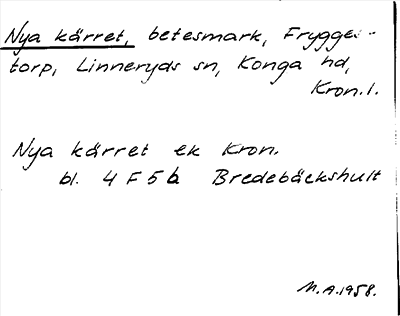 Nya kärret, betesmark, Frygge-
torp, Linneryds sn, Konga hd,
Kron.l.
Nya kärret ek Kron.
bl. 4 F 5 b Bredebäckshult
M.A.1958.